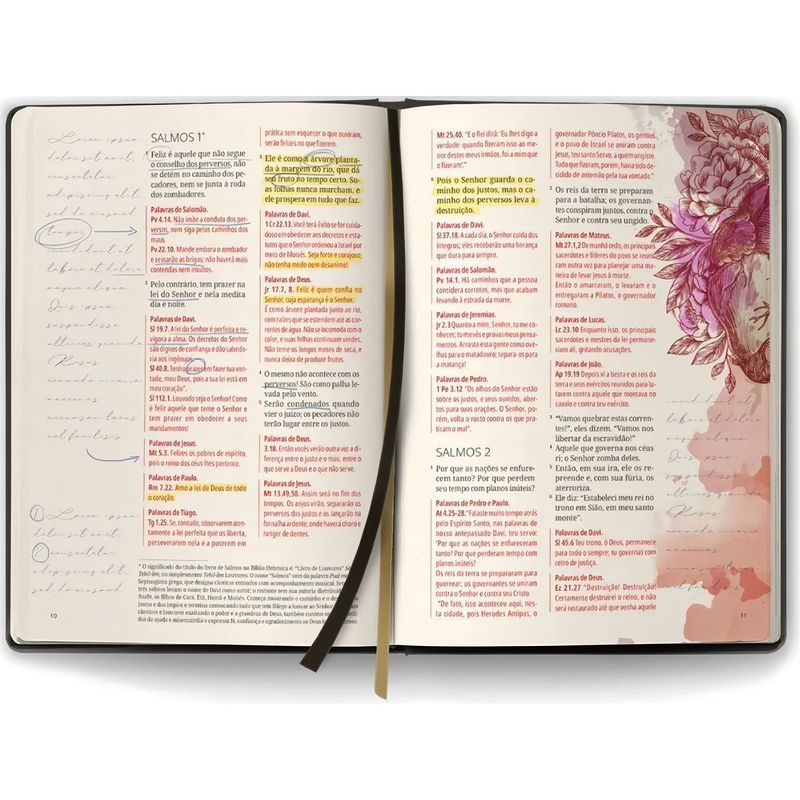 SALMOS 1*
1 Feliz é aquele que não segue
o conselho dos perversos, não
se detém no caminho dos pe-
cadores, nem se junta à roda
dos zombadores.
Palavras de Salomão.
Pv 4.14. Não imite a conduta dos per-
versos, nem siga pelos caminhos dos
maus.
Pv 22.10. Mande embora o zombador
e cessarão as brigas; não haverá mais
contendas nem insultos.
2 Pelo contrário, tem prazer na
lei do Senhor e nela medita
dia e noite.
Palavras de Davi.
Sl 19.7. A lei do Senhor é perfeita e re-
vigora a alma. Os decretos do Senhor
são dignos de confiança e dão sabedo-
ria aos ingênuos.
Sl 40.8. Senhor,
tade, meu Deus, pois a tua lei está em
meu coração".
Sl 112.1. Louvado seja o Senhor! Como
é feliz aquele que teme o Senhor e
tem prazer em obedecer a seus
mandamentos!
Palavras de Jesus.
Mt 5.3. Felizes os pobres de espírito,
pois o reino dos céus lhes pertence.
Palavras de Paulo.
Rm 7.22. Amo a lei de Deus de todo
o coração.
Palavras de Tiago.
Tg 1.25. Se, contudo, observarem atenta-
mente a lei perfeita que os liberta,
perseverarem nela e a puserem em
prática sem esquecer o que ouviram,
serão felizes no que fizerem.
3 Ele é como a árvore planta-
da à margem do rio, que dá
seu fruto no tempo certo. Su-
as folhas nunca murcham, e
ele prospera em tudo que faz.
Palavras de Davi.
1 Cr 22.13. Você terá êxito se for cuida-
doso em obedecer aos decretos e esta-
tutos que o Senhor ordenou a Israel por
meio de Moisés. Seja forte e corajoso;
não tenha medo nem desanime!
Palavras de Deus.
Jr 17.7, 8. Feliz é quem confia no
Senhor, cuja esperança é o Senhor.
É como árvore plantada junto ao rio,
com raízes que se estendem até as cor-
rentes de água. Não se incomoda com o
calor, e suas folhas continuam verdes.
Não teme os longos meses de seca, e
nunca deixa de produzir frutos.
4 O mesmo não acontece com os
perversos! São como palha le-
vada pelo vento.
5 Serão condenados quando
vier o juízo; os pecadores não
terão lugar entre os justos.
Palavras de Deus.
3.18. Então vocês verão outra vez a di-
ferença entre o justo e o mau, entre o
que serve a Deus e o que não serve.
Palavras de Jesus.
Mt 13.49,50. Assim será no fim dos
tempos. Os anjos virão, separarão os
perversos dos justos e os lançarão na
fornalha ardente, onde haverá choro e
ranger de dentes.
* O significado do título do livro de Salmos na Bíblia Hebraica é: "Livro de Louvores"
10
Mt 25.40. "E o Rei dirá: 'Eu lhes digo a
verdade: quando fizeram isso ao me-
nor destes meus irmãos, foi a mim que
o fizeram'".
6 Pois o Senhor guarda o ca-
minho dos justos, mas o ca-
minho dos perversos leva à
destruição.
Palavras de Davi.
Sl 37.18. A cada dia, o Senhor cuida dos
íntegros; eles receberão uma herança
que dura para sempre.
Palavras de Salomão.
Pv 14.1. Há caminhos que a pessoa
considera corretos, mas que acabam
levando à estrada da morte.
Palavras de Jeremias.
Jr 2.3 Quanto a mim, Senhor, tu me co-
nheces; tu me vês e provas meus pensa-
mentos. Arrasta essa gente como ove-
lhas para o matadouro; separa-os para
a matança!
Palavras de Pedro.
1 Pe 3.12 "Os olhos do Senhor estão
sobre os justos, e seus ouvidos, aber-
tos para suas orações. O Senhor, po-
rém, volta o rosto contra os que pra-
ticam o mal".
SALMOS 2
1 Por que as nações se enfure-
cem tanto? Por que perdem
seu tempo com planos inúteis?
Palavras de Pedro e Paulo.
At 4.25-28. "Falaste muito tempo atrás
pelo Espírito Santo, nas palavras de
nosso antepassado Davi, teu servo:
'Por que as nações se enfureceram
tanto? Por que perderam tempo com
planos inúteis?
Os reis da terra se prepararam para
guerrear; os governantes se uniram
contra o Senhor e contra seu Cristo.
"De fato, isso aconteceu aqui, nes-
ta cidade, pois Herodes Antipas, o
governador Pôncio Pilatos, os gentios
e o povo de Israel se uniram contra
Jesus, teu santo Servo, a quem ungiste.
Tudo que fizeram, porém, havia sido de-
cidido de antemão pela tua vontade."
2 Os reis da terra se preparam
para a batalha; os governan-
tes conspiram juntos, contra o
Senhor e contra seu ungido.
Palavras de Mateus.
Mt 27.1,2 De manhã cedo, os principais
sacerdotes e líderes do povo se reuni-
ram outra vez para planejar uma ma-
neira de levar Jesus à morte.
Então o amarraram, o levaram e o
entregaram a Pilatos, o governador
romano.
Palavras de Lucas.
Lc 23.10 Enquanto isso, os principais
sacerdotes e mestres da lei permane-
ciam ali, gritando acusações.
Palavras de João.
Ap 19.19 Depois vi a besta e os reis da
terra e seus exércitos reunidos para lu-
tarem contra aquele que montava no
cavalo e contra seu exército.
3 "Vamos quebrar estas corren-
tes!", eles dizem. "Vamos nos
libertar da escravidão!"
4 Aquele que governa nos céus
ri; o Senhor zomba deles.
5 Então, em sua ira, ele os re-
preende e, com sua fúria, os
aterroriza.
6 Ele diz: "Estabeleci meu rei no
trono em Sião, em meu santo
monte".
Palavras de Davi.
Sl 45.6 Teu trono, ó Deus, permanece
para todo o sempre; tu governas com
cetro de justiça.
Palavras de Deus.
Ez 21.27 "Destruição! Destruição!
Certamente destruirei o reino, e não
será restaurado até que venha aquele
11